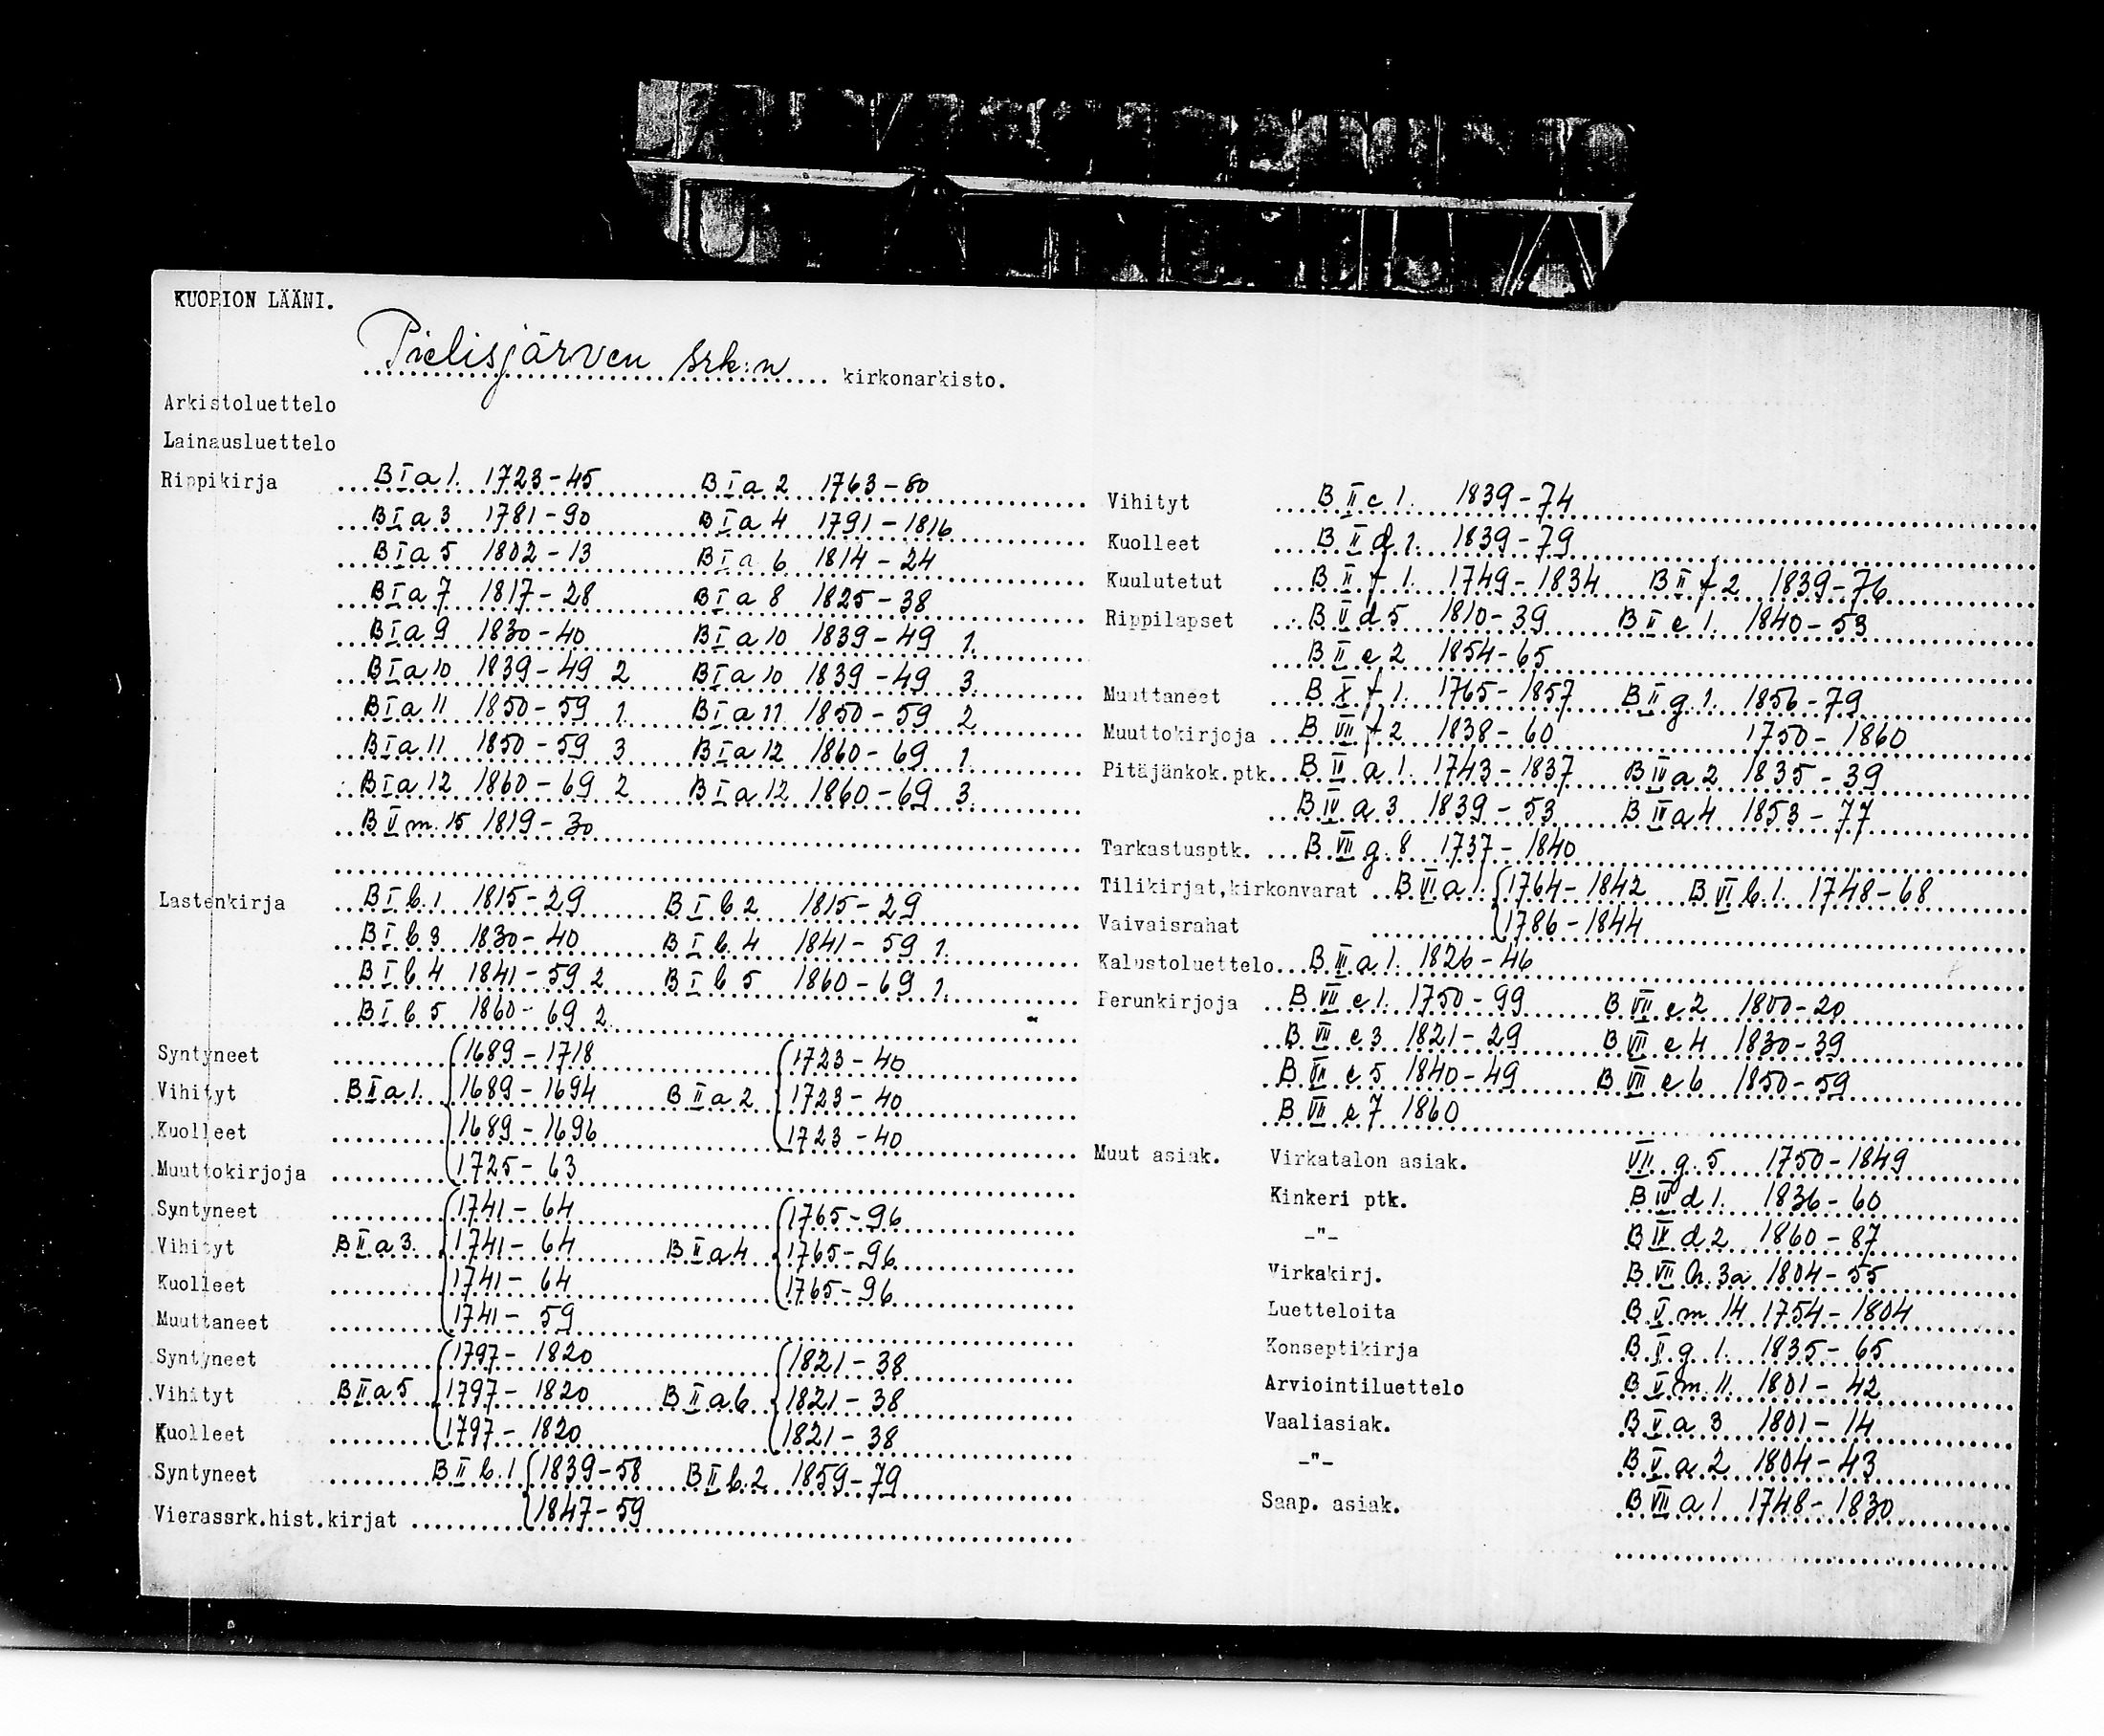 KUOPION LÄÄNI.
Pielisjärven srk:n kirkonarkisto.
Arkistoluettelo
Lainausluettelo
Rippikirja B I a 1. 1723-45 B I a 2 1763-80
B I a 3 1781-90 B I a 4 1791-1816
B I a 5 1802-13 B I a 6 1814-24
B I a 7 1817-28 B I a 8 1825-38
B I a 9 1830-40 B I a 10 1839-49 1.
B I a 10 1839-49 2 B I a 10 1839-49 3.
B I a 11 1850-59 1. B I a 11 1850-59 2
B I a 11 1850-59 3 B I a 12 1860-69 1.
B I a 12 1860-69 2 B I a 12 1860-69 3.
B V m. 15 1819-30
Lastenkirja B I b. 1 1815-29 B I b 2 1815-29
B I b 3 1830-40 B I b. 4 1841-59 1.
B I b 4 1841-59 2 B I b 5 1860-69 1.
B I b 5 1860-69 2.
Syntyneet 1689-1718 1723-40
Vihityt B II a 1. 1689-1694 B II a 2 1723-40
Kuolleet 1689-1696 1723-40
Muuttokirjoja 1725-63
Syntyneet 1741-64 1765-96
Vihityt B II a 3. 1741-64 B II a 4 1765-96
Kuolleet 1741-64 1765-96
Muuttaneet 1741-59
Syntyneet 1797-1820 1821-38
Vihityt B II a 5 1797-1820 B II a 6 1821-38
Kuolleet 1797-1820 1821-38
Syntyneet B II b. 1 1839-58 B II b. 2 1859-79
Vierassrk.hist.kirjat 1847-59
Vihityt B II c 1. 1839-74
Kuolleet B II d 1. 1839-79
Kuulutetut B II f 1. 1749-1834 B II f 2 1839-76
Rippilapset B V d 5 1810-39 B II e 1. 1840-53
B II e 2 1854-65
Muuttaneet B X f 1. 1765-1857 B II g. 1. 1856-79
Muuttokirjoja B VII f 2 1838-60 1750-1860
Pitäjänkok.ptk. B IV a 1. 1743-1837 B IV a 2 1835-39
B IV a 3 1839-53 B IV a 4 1853-77
Tarkastusptk. B VII g. 8 1737-1840
Tilikirjat,kirkonvarat B VI a 1. 1764-1842 B VI b. 1. 1748-68
Vaivaisrahat 1786-1844
Kalustoluettelo B III a 1. 1826-46
Perunkirjoja B VII e 1. 1750-99 B VII e 2 1800-20
B VII e 3 1821-29 B VII e 4 1830-39
B VII e 5 1840-49 B VII e 6 1850-59
B VII e 7 1860
Muut asiak. Virkatalon asiak. VII g. 5 1750-1849
Kinkeri ptk. B IV d 1. 1836-60
-"- B IV d 2 1860-87
Virkakirj. B VII h. 3a 1804-55
Luetteloita B V m 14 1754-1804
Konseptikirja B g. 1. 1835-65
Arviointiluettelo B V m. 11. 1801-42
Vaaliasiak. B V a 3 1801-14
-"- B V a 2 1804-43
Saap. asiak. B VII a 1 1748-1830